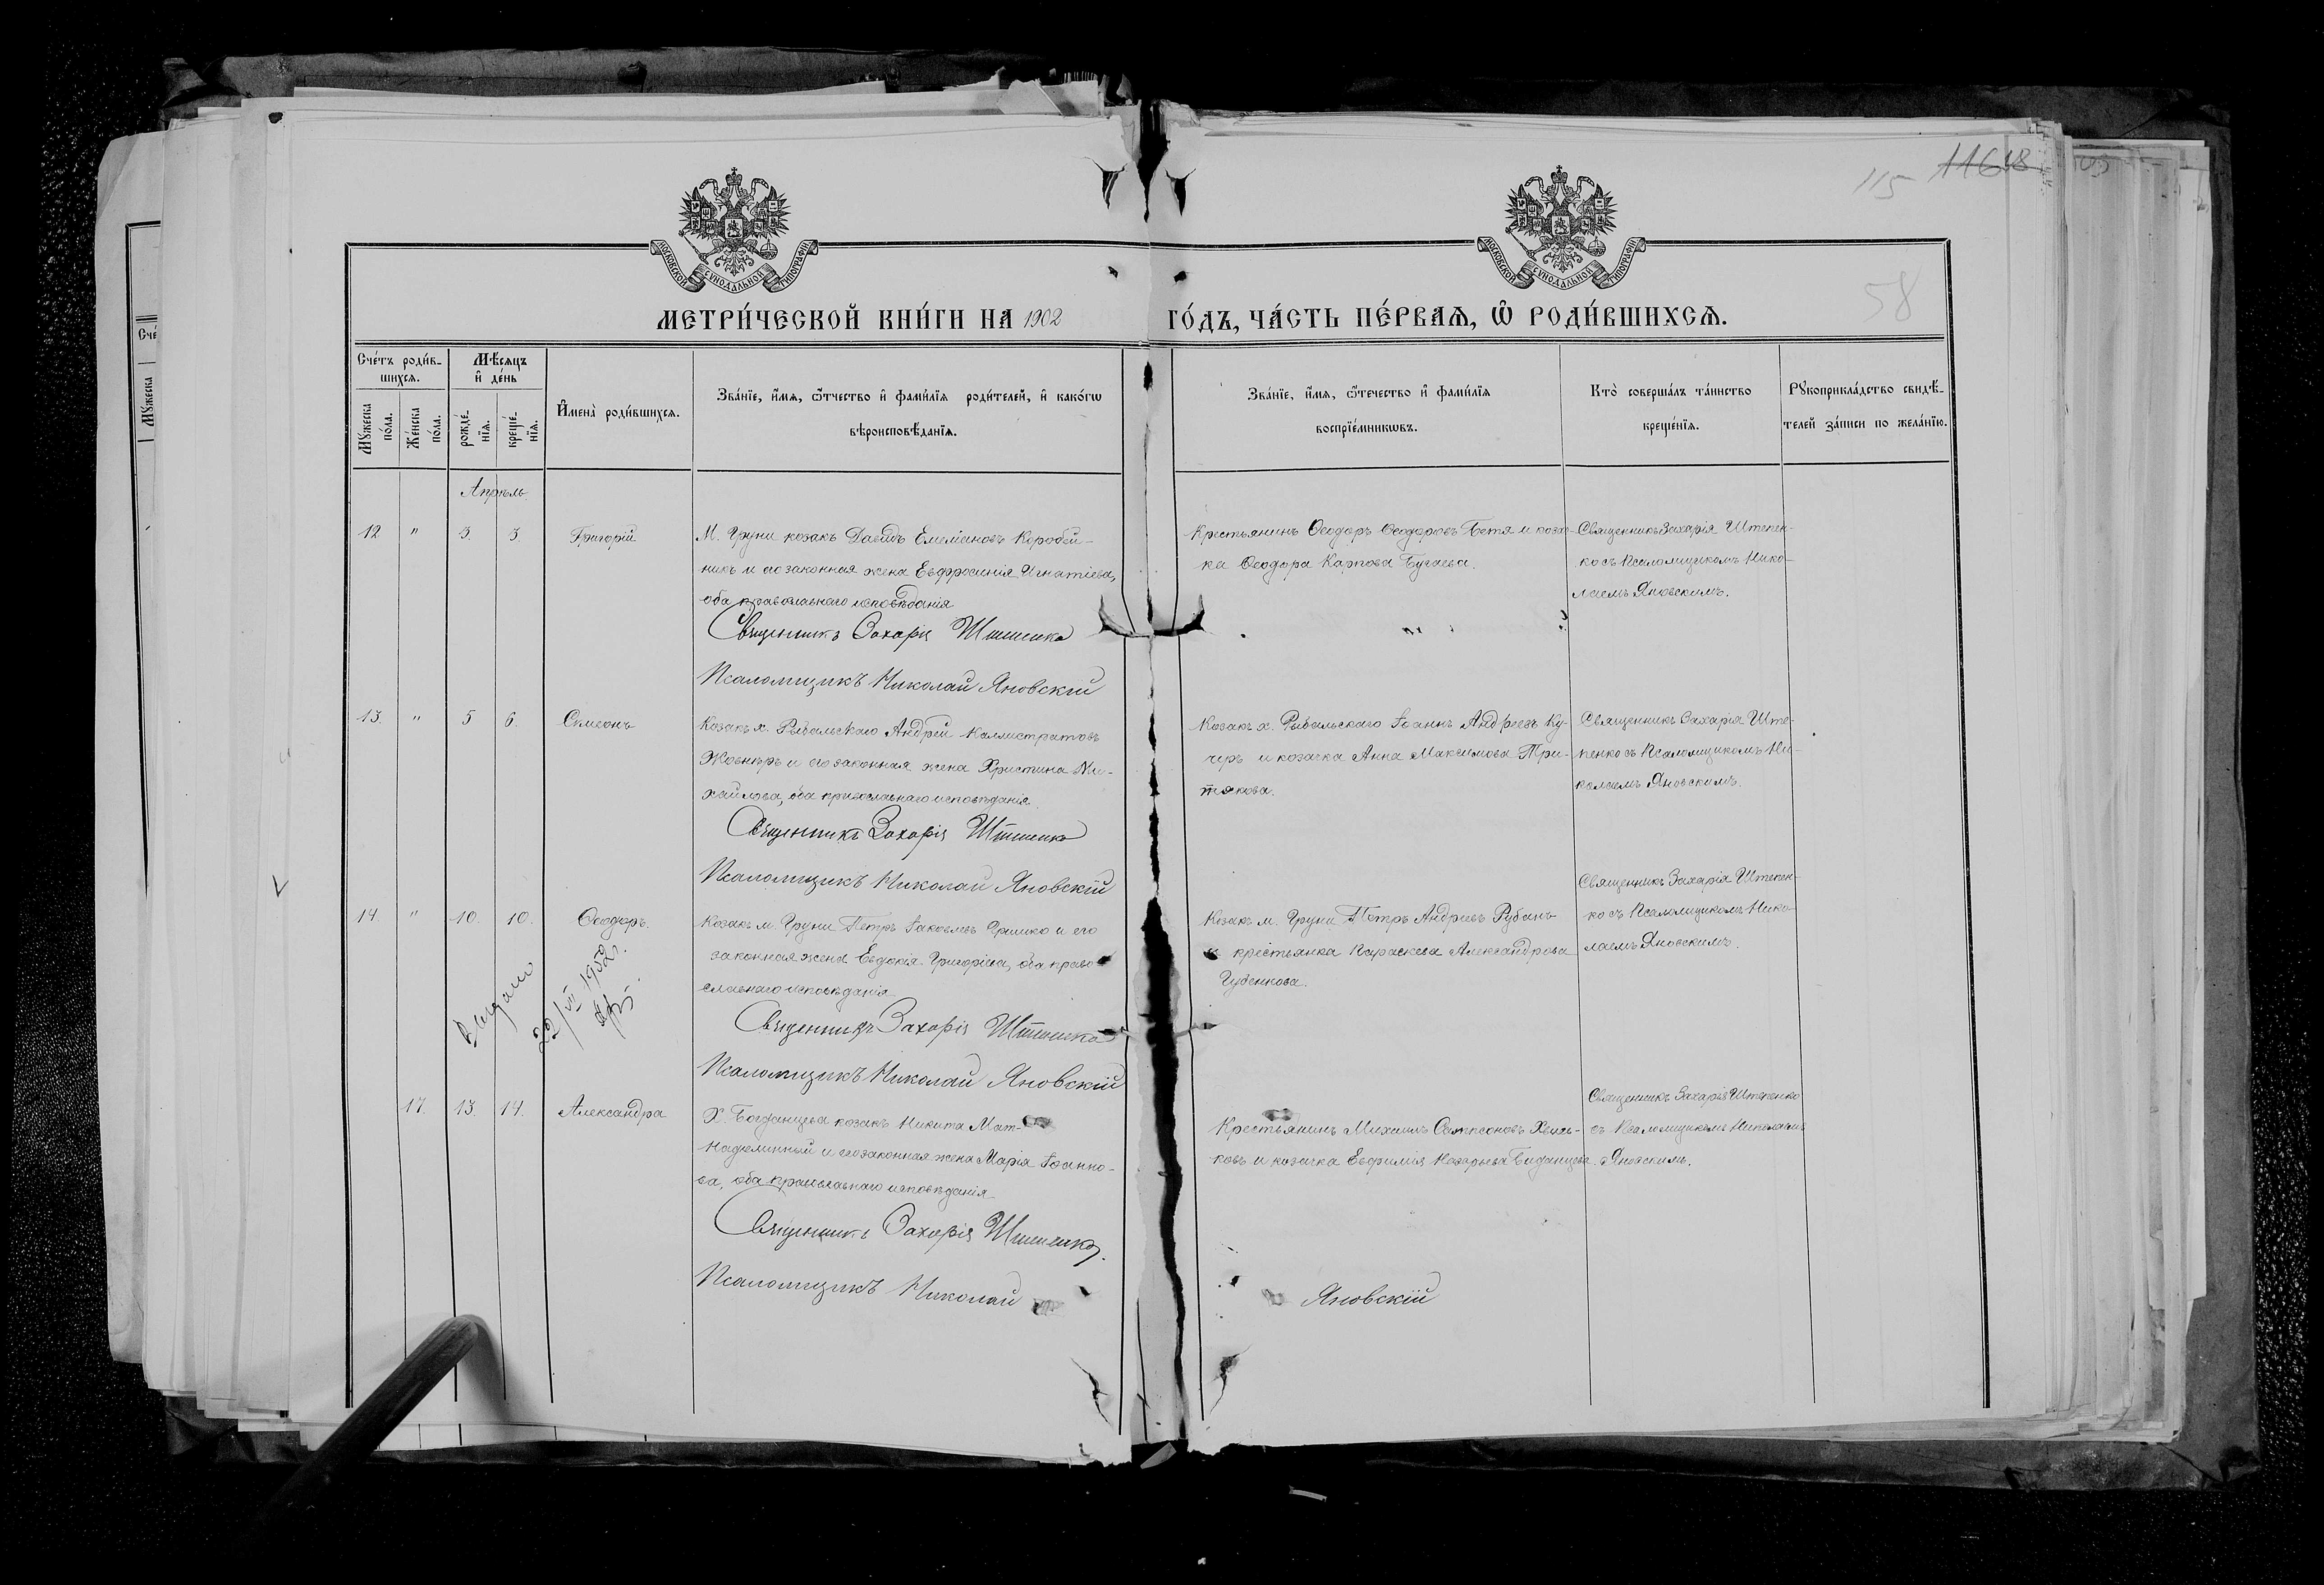 115 11618
58
МОСКОВСКОЙ СѴНОДАЛЬНОЙ ТИПОГРАФІИ
МОСКОВСКОЙ СѴНОДАЛЬНОЙ ТИПОГРАФІИ
МЕТРИ́ЧЕСКОЙ КНИ́ГИ НА 1902 ГО́ДЪ, ЧА́СТЬ ПЕ́РВАѦ, Ѽ РОДИ́ВШИХСѦ.
Сче́тъ роди́в-
шихсѧ.
Мѣ́сѧцъ
и҆ де́нь
Мꙋ́жеска по́ла.
Же́нска по́ла.
рожде́-
нїѧ.
креще́-
нїѧ.
И҆мена̀ роди́вшихсѧ.
Зва́нїе, и҆́мѧ, ѻ҆́тчество и҆ фами́лїѧ роди́телей, и҆ како́гѡ
вѣроисповѣ́данїѧ.
Зва́нїе, и҆́мѧ, ѻ҆́течество и҆ фами́лїѧ
воспрїе́мникѡвъ.
Кто̀ соверша́лъ та́инство
креще́нїѧ.
Рꙋкоприкла́дство свидѣ́-
телей за́писи по жела́нїю.
Апрѣль
12 " 3. 3. Григорій
М. Груни козакъ Давидъ Емеліановъ Коробей-
никъ и его законная жена Евфросинія Игнатіева,
оба православнаго исповѣданія
Священникъ Захарія
Псаломщикъ Николай Яновскій
Крестьянинъ Ѳеодоръ Ѳеодоровъ Бетя и козач-
ка Ѳеодора Карпова Бугаева.
Священникъ Захарія Штепен-
ко съ Псаломщикомъ Нико-
лаемъ Яновскимъ.
13. " 5 6. Сѵмеонъ
Козакъ х. Рыбальскаго Андрей Каллистратовъ
Жовнѣръ и его законная жена Христина Ми-
хайлова, оба православнаго исповѣданія.
Священникъ Захарія Штепенко
Псаломщикъ Николай Яновскій
Козакъ х. Рыбальскаго Іоаннъ Андреевъ Ку-
черъ и козачка Анна Максимова Три-
тякова.
Священникъ ЗахаріяШте-
пенко съ Псаломщикомъ Ни-
колаемъ Яновскимъ.
14. " 10. 10. Ѳеодоръ.
Козакъ м. Груни Петръ Іаковлевъ Гришко и его
законная жена Евдокія Григоріева, оба право-
славнаго исповѣданія
Священникъ Захарія Штепенко
Псаломщикъ Николай Яновскій
Козакъ м. Груни Петръ Андреевъ Рубанъ
и крестьянка Параскева Александрова
Гуденкова.
Священникъ Захарія Штепен-
ко съ Псаломщикомъ Нико-
лаемъ Яновскимъ.
Видано
22/VII 1952 г.
17. 13. 14. Александра
Х. Богданцева козакъ Никита Мат-
и его законная жена Марія Іоанно-
ва, оба православнаго исповѣданія
Священникъ Захарія Штепенко.
Псаломщикъ Николай Яновскій
Крестьянинъ Михаилъ Сампсоновъ
ковъ и козачка Евфимія Назарьева
Священникъ Захарія Штепенко
съ Псаломщикомъ Николаемъ
Яновскимъ.